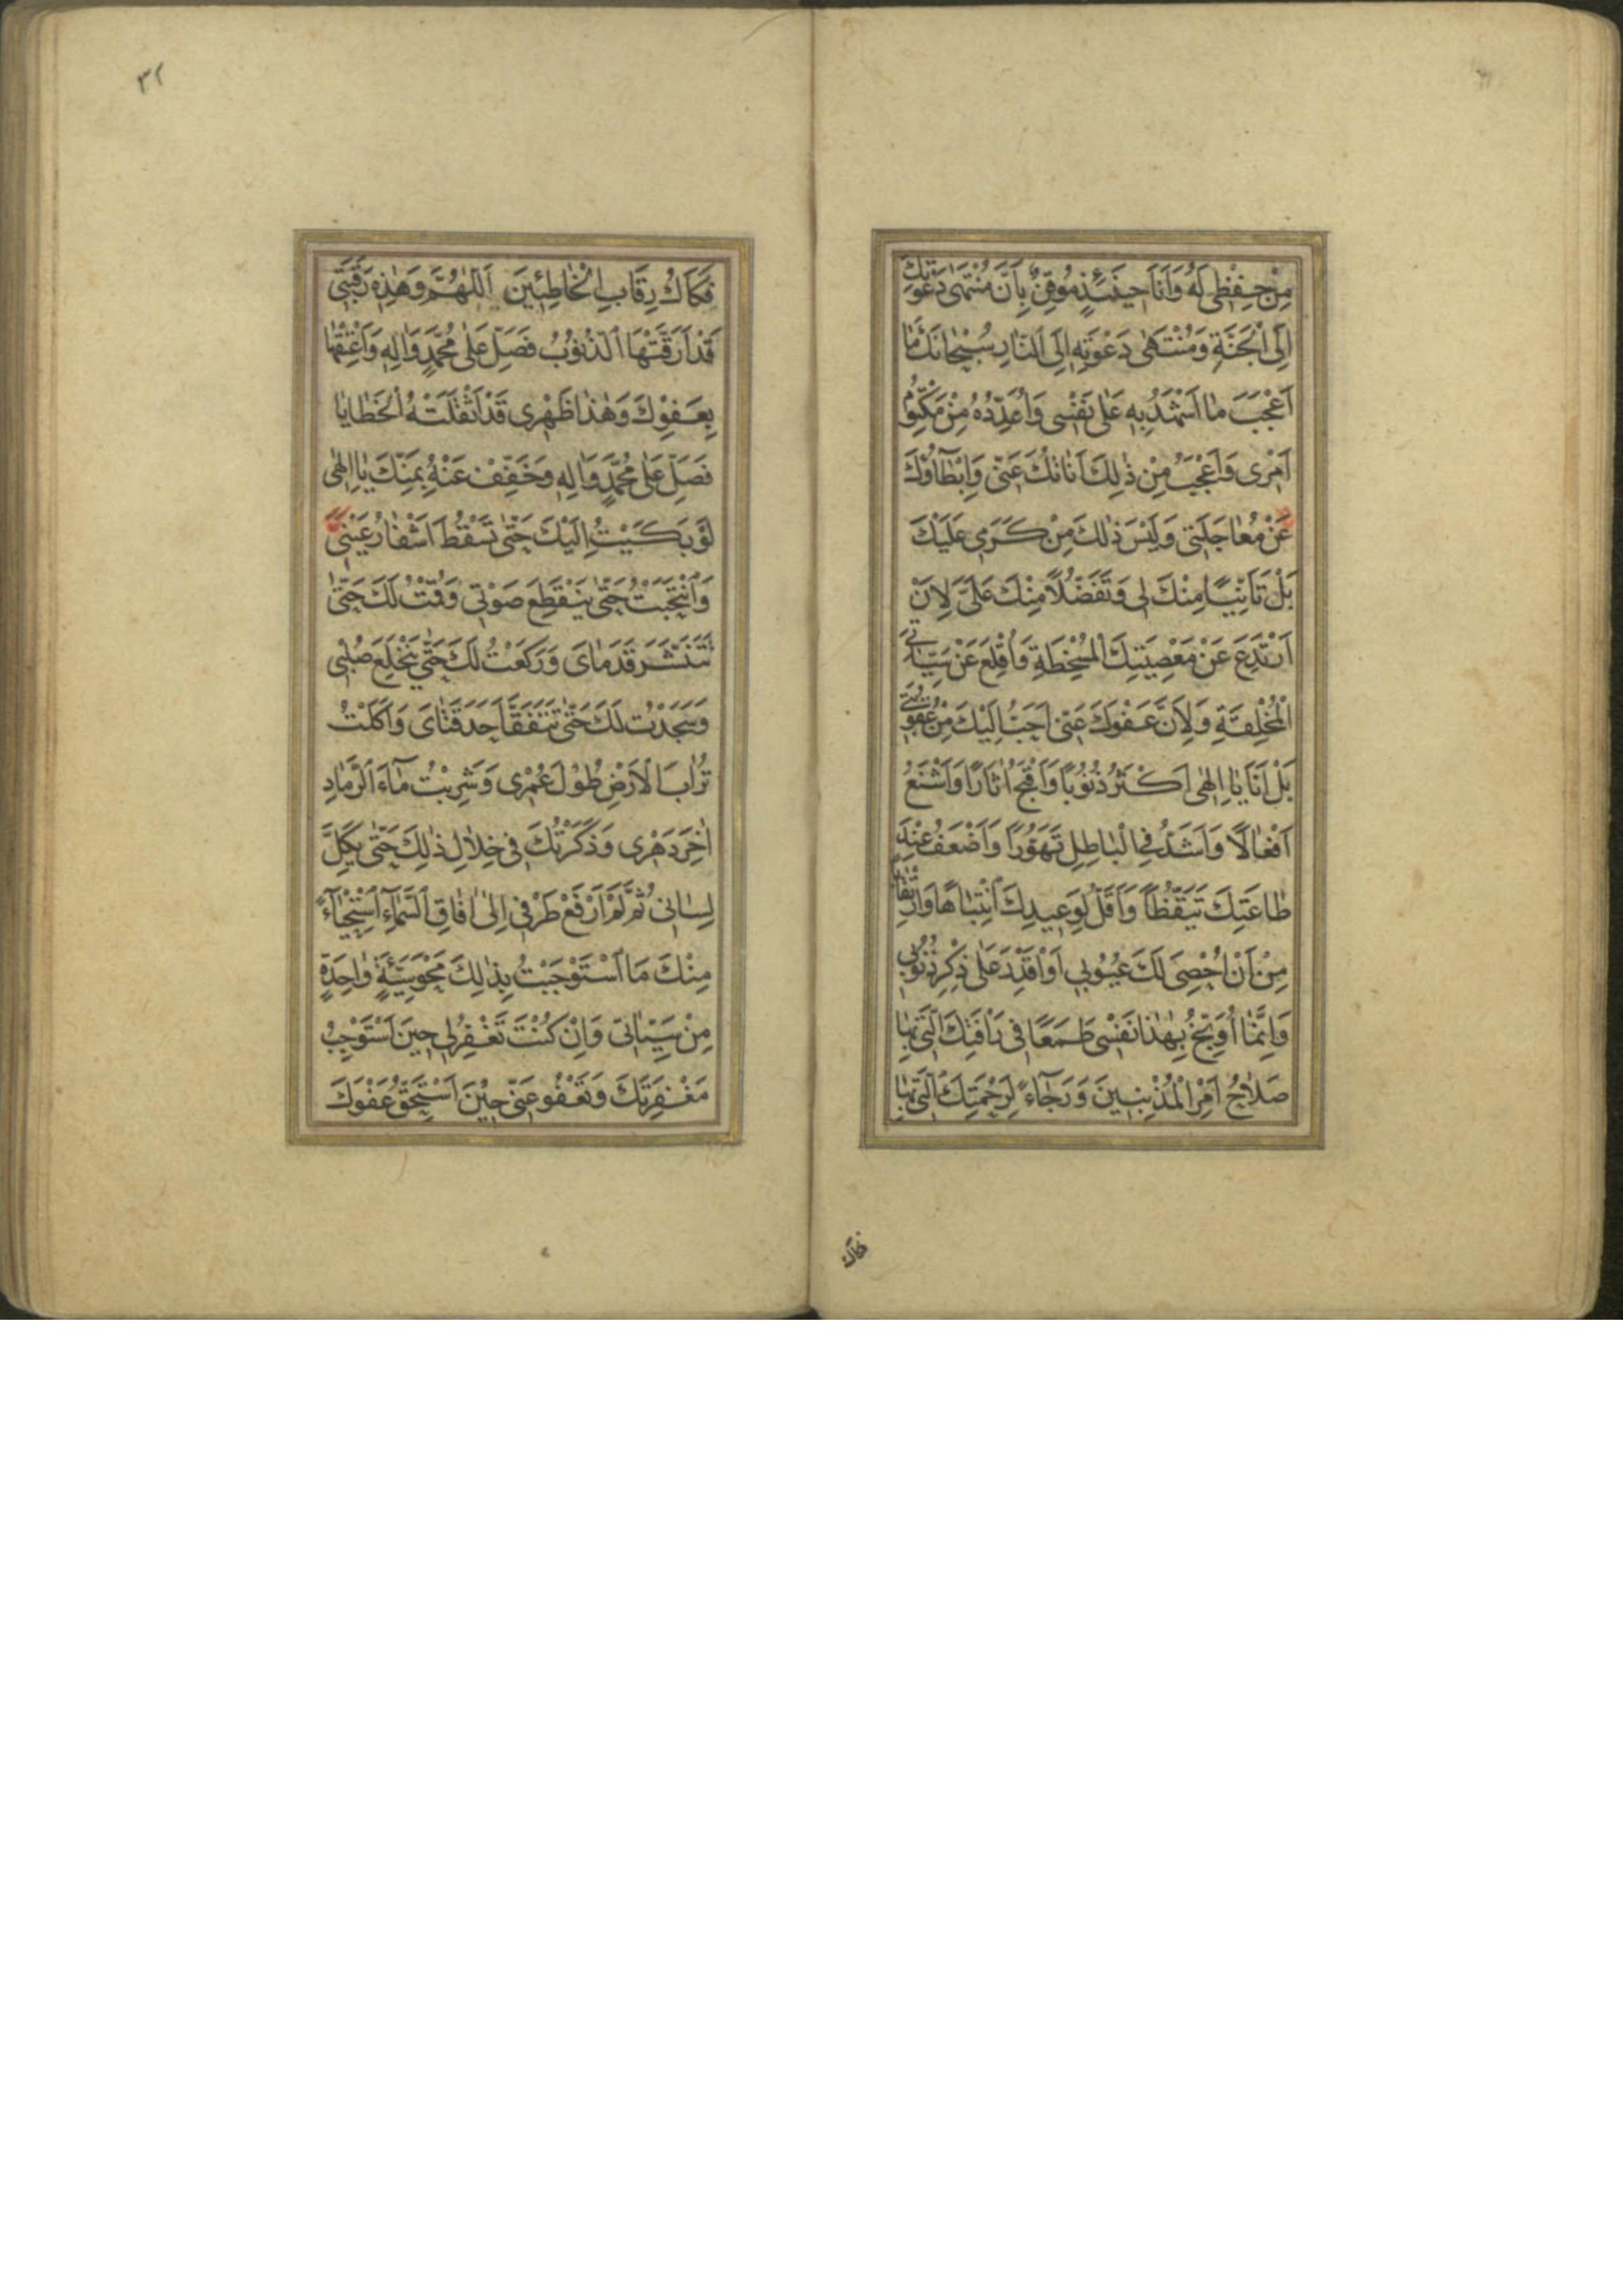 مِنْ حِفْظِي لَهُ وَأَنَا حِينَئِذٍ مُوقِنٌ بِأَنَّ مُنْتَهَى دَعْوَتِكَ
إِلَى الْجَنَّةِ وَمُنْتَهَى دَعْوَتِهِ إِلَى النَّارِ سُبْحَانَكَ مَا
أَعْجَبَ مَا أَشْهَدُ بِهِ عَلَى نَفْسِي وَأُعَدِّدُهُ مِنْ مَكْتُومِ
أَمْرِي وَأَعْجَبُ مِنْ ذَلِكَ أَنَاتُكَ عَنِّي وَإِبْطَآؤُكَ
عَنْ مُعَاجَلَتِي وَلَيْسَ ذَلِكَ مِنْ كَرَمِي عَلَيْكَ
بَلْ تَأَنِّيًا مِنْكَ لِي وَتَفَضُّلًا مِنْكَ عَلَيَّ لِأَنْ
أَرْتَدِعَ عَنْ مَعْصِيَتِكَ الْمُسْخِطَةِ وَأُقْلِعَ عَنْ سَيِّئَاتِي
الْمُخْلِقَةِ وَلِأَنَّ عَفْوَكَ عَنِّي أَحَبُّ إِلَيْكَ مِنْ عُقُوبَتِي
بَلْ أَنَا يَا إِلَهِي أَكْثَرُ ذُنُوبًا وَأَقْبَحُ آثَارًا وَأَشْنَعُ
أَفْعَالًا وَأَشَدُّ فِي الْبَاطِلِ تَهَوُّرًا وَأَضْعَفُ عِنْدَ
طَاعَتِكَ تَيَقُّظًا وَأَقَلُّ لِوَعِيدِكَ انْتِبَاهًا وَارْتِقَابًا
مِنْ أَنْ أُحْصِيَ لَكَ عُيُوبِي أَوْ أَقْدِرَ عَلَى ذِكْرِ ذُنُوبِي
وَإِنَّمَا أُوَبِّخُ بِهَذَا نَفْسِي طَمَعًا فِي رَأْفَتِكَ الَّتِي بِهَا
صَلَاحُ أَمْرِ الْمُذْنِبِينَ وَرَجَآءً لِرَحْمَتِكَ الَّتِي بِهَا
فكاك
٣٢
فَكَاكُ رِقَابِ الْخَاطِئِينَ اَللَّهُمَّ وَهَذِهِ رَقَبَتِي
قَدْ أَرَقَّتْهَا الذُّنُوبُ فَصَلِّ عَلَى مُحَمَّدٍ وَآلِهِ وَأَعْتِقْهَا
بِعَفْوِكَ وَهَذَا ظَهْرِي قَدْ أَثْقَلَتْهُ الْخَطَايَا
فَصَلِّ عَلَى مُحَمَّدٍ وَآلِهِ وَخَفِّفْ عَنْهُ بِمَنِّكَ يَا إِلَهِي
لَوْ بَكَيْتُ إِلَيْكَ حَتَّى تَسْقُطَ أَشْفَارُ عَيْنَيَّ
وَانْتَحَبْتُ حَتَّى يَنْقَطِعَ صَوْتِي وَقُمْتُ لَكَ حَتَّى
تَتَنَشَّرَ قَدَمَايَ وَرَكَعْتُ لَكَ حَتَّى يَنْخَلِعَ صُلْبِي
وَسَجَدْتُ لَكَ حَتَّى تَتَفَقَّأَ حَدَقَتَايَ وَأَكَلْتُ
تُرَابَ الْأَرْضِ طُولَ عُمْرِي وَشَرِبْتُ مَآءَ الرَّمَادِ
آخِرَ دَهْرِي وَذَكَرْتُكَ فِي خِلَالِ ذَلِكَ حَتَّى يَكِلَّ
لِسَانِي ثُمَّ لَمْ أَرْفَعْ طَرْفِي إِلَى آفَاقِ السَّمَآءِ اسْتِحْيَآءً
مِنْكَ مَا اسْتَوْجَبْتُ بِذَلِكَ مَحْوَ سَيِّئَةٍ وَاحِدَةٍ
مِنْ سَيِّئَاتِي وَإِنْ كُنْتَ تَغْفِرُ لِي حِينَ أَسْتَوْجِبُ
مَغْفِرَتَكَ وَتَعْفُو عَنِّي حِينَ أَسْتَحِقُّ عَفْوَكَ